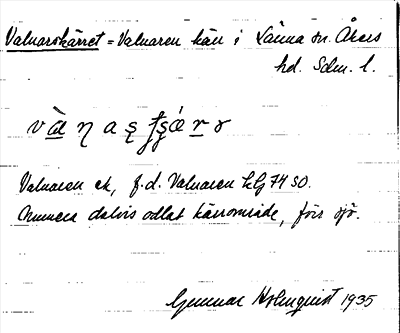 Valnarskärret = Valnaren kärr i Länna sn. Åkers
hd. Sdm. l.
Valnaren ek, f.d. Valnaren hlj 74 SO.
Numera delvis odlat kärrområde, förr sjö.
Gunnar Holmquist 1935